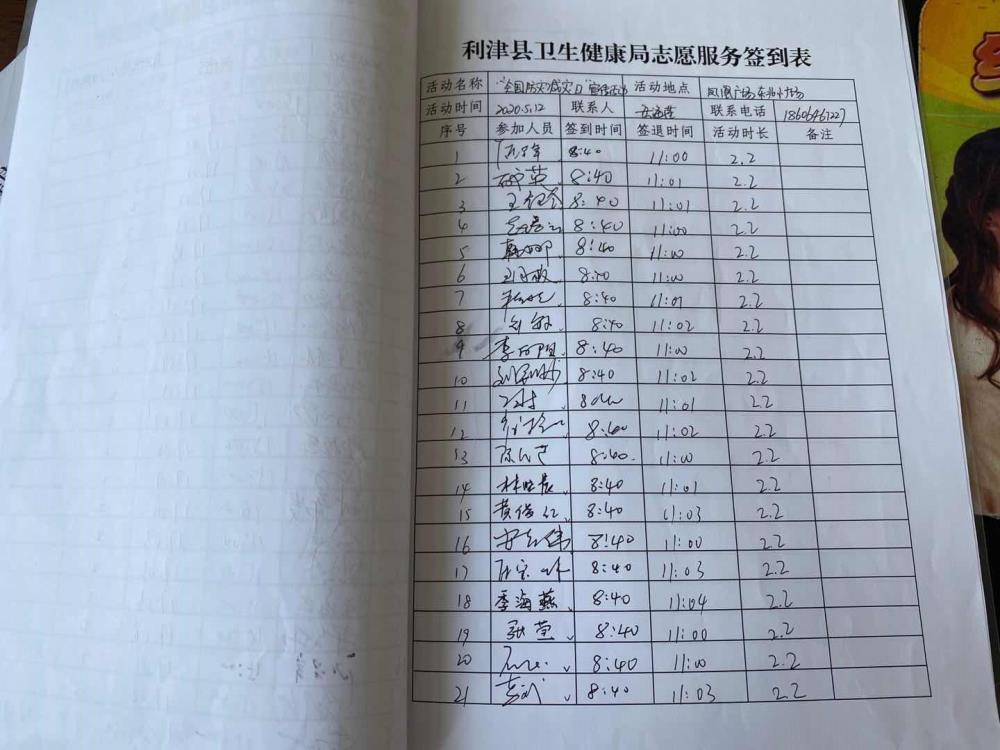 利津县卫生健康局志愿服务签到表
活动名称 "全国防灾减灾日"宣传活动 活动地点 凤凰广场东北广场
活动时间 2020.5.12 联系人 联系电话 18606461227
序号 参加人员 签到时间 签退时间 活动时长 备注
1 8:40 11:00 2.2
2 英 8:40 11:01 2.2
3 王 8:40 11:01 2.2
4 8:40 11:00 2.2
5 韩 8:40 11:00 2.2
6 8:40 11:00 2.2
7 8:40 11:01 2.2
8 刘敏 8:40 11:02 2.2
9 李 8:40 11:00 2.2
10 刘 8:40 11:02 2.2
11 8:40 11:01 2.2
12 8:40 11:02 2.2
13 8:40 11:00 2.2
14 林晓晨 8:40 11:01 2.2
15 黄俊红 8:40 11:03 2.2
16 伟 8:40 11:00 2.2
17 8:40 11:03 2.2
18 季海燕 8:40 11:04 2.2
19 张莹 8:40 11:00 2.2
20 8:40 11:00 2.2
21 8:40 11:03 2.2